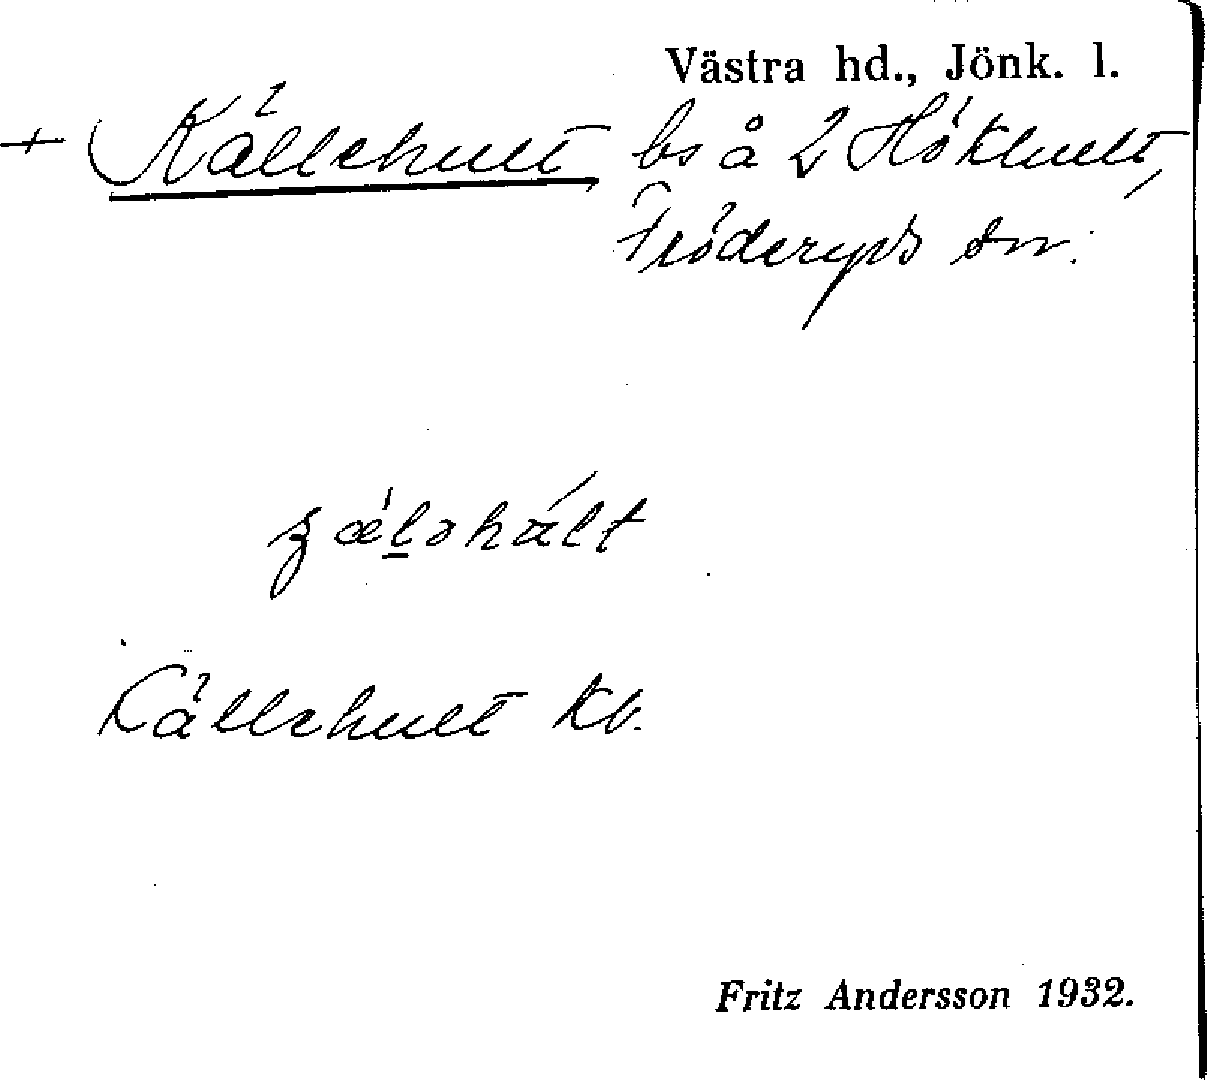 Västra hd., Jönk. l.
+ Källehult bs å 2 Hökhult,
Fröderyds sn.
Källehult kb.
Fritz Andersson 1932.